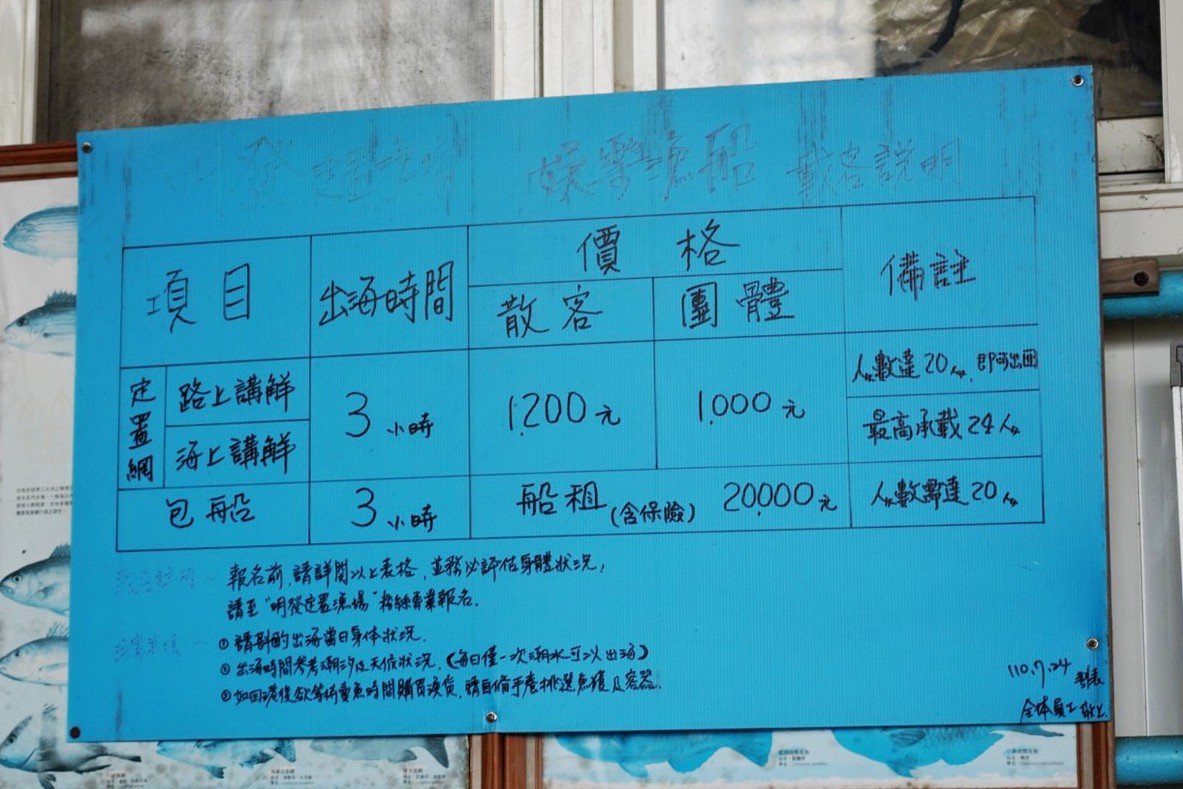 娛樂漁船 報名說明
項目 出海時間 價格 備註
散客 團體
定置網 路上講解 3小時 1,200元 1,000元 人數達20人,即可出團
海上講解 最高承載24人
包船 3小時 船租(含保險) 20,000元 人數需達20人
報名前,請詳閱以上表格,並務必評估身體狀況,
請至"明發定置漁場"粉絲專業報名.
①請斟酌出海當日身体狀況.
②出海時間參考潮汐及天候狀況.(每日僅一次潮水可以出海)
③如回港後欲等待賣魚時間購買漁貨,請自備手套挑選魚獲及容器.
110.7.24
全体員工敬上